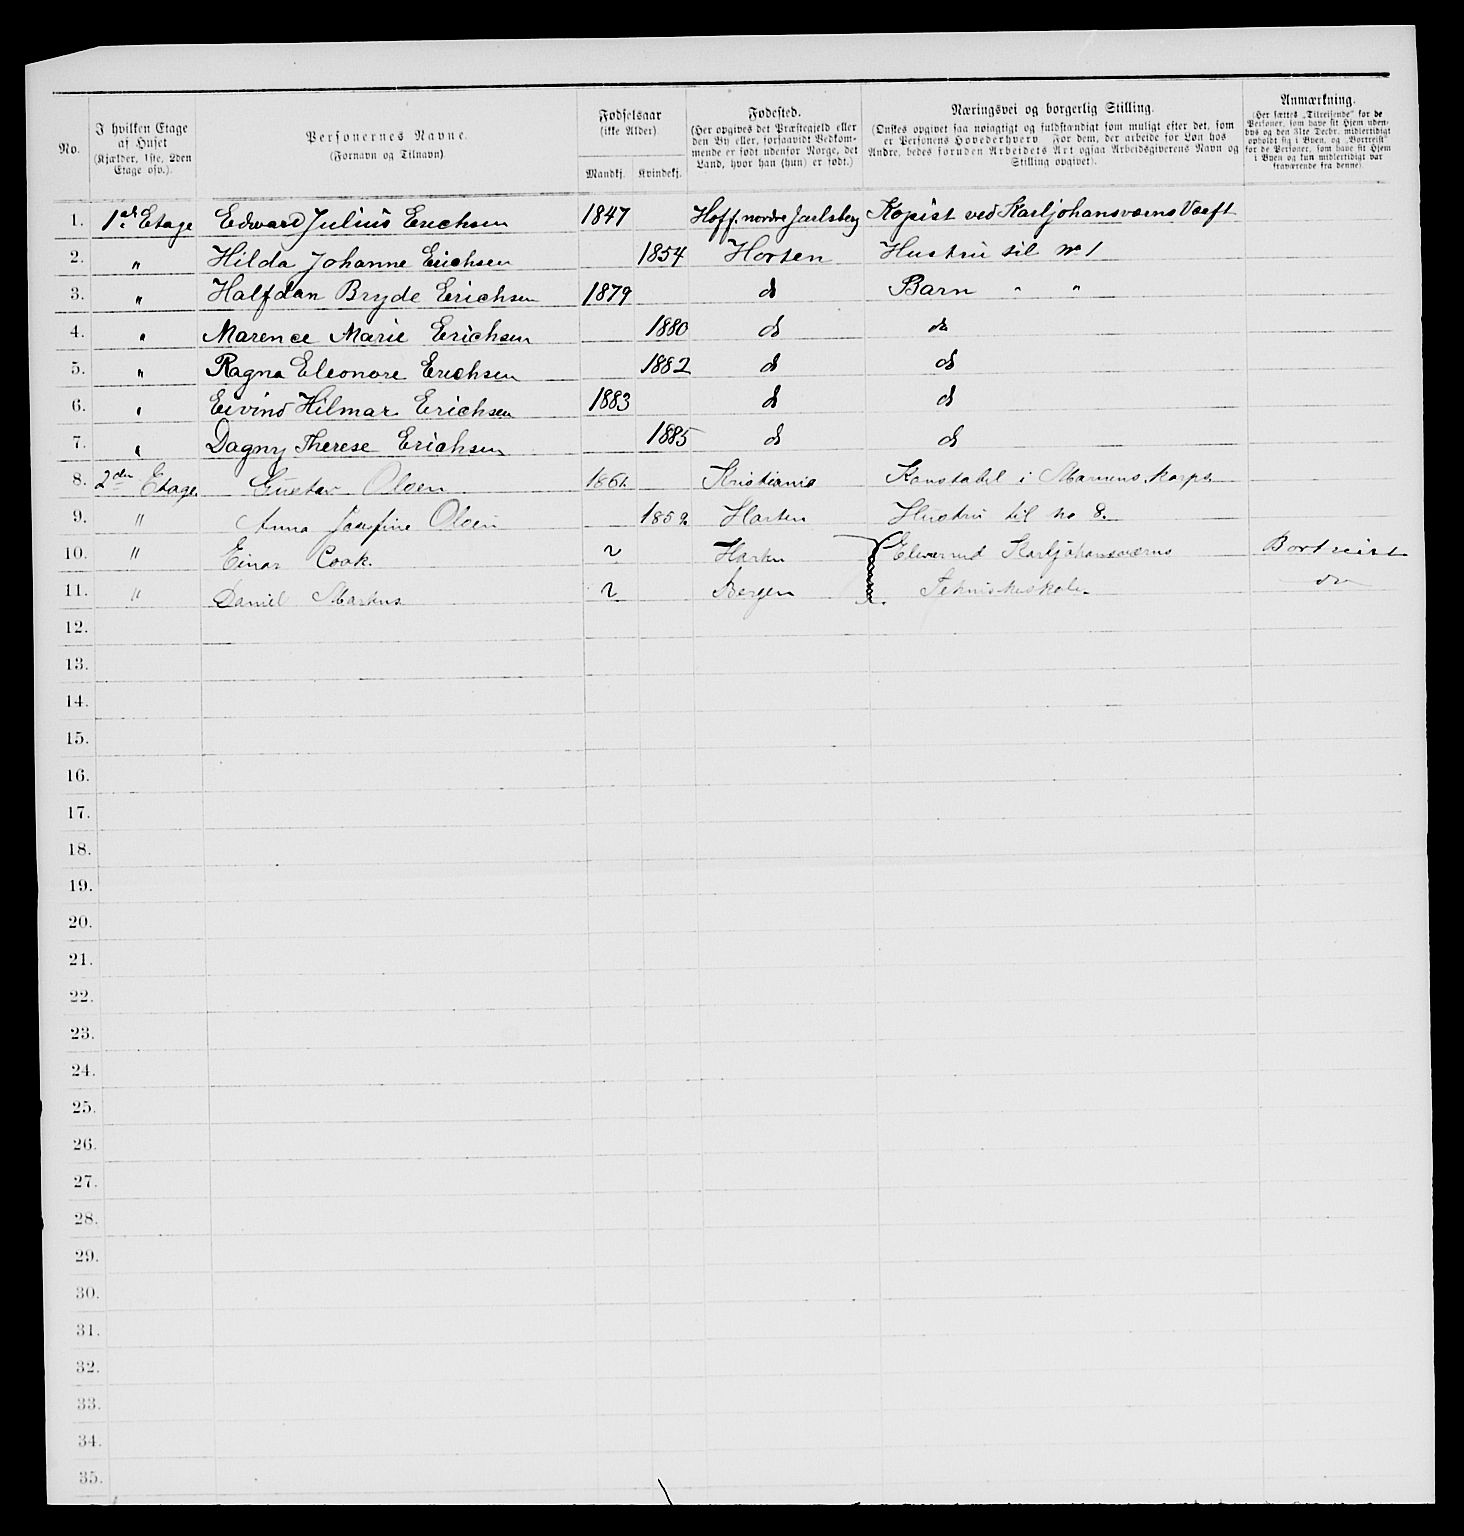 No. I hvilken Etage af Huset (Kjælder, 1ste, 2den Etage osv.). Personernes Navne. (Fornavn og Tilnavn) Fødselsaar (ikke Alder) Mandkj. Kvindekj. Fødested. (Her opgives det Præstegjeld eller den By eller, forsaavidt Vedkommende er født udenfor Norge, det Land, hvor han (hun) er født.) Næringsvei og borgerlig Stilling. (Ønskes opgivet saa nøiagtigt og fuldstændigt som muligt efter det, som er Personens Hovederhverv For dem, der arbeide for Løn hos Andre, bedes foruden Arbeidets Art ogsaa Arbeidsgiverens Navn og Stilling opgivet). Anmærkning. (Her sættes „Tilreisende" for de Personer, som have sit Hjem udenbys og den 31te Decbr. midlertidigt opholdt sig i Byen, og „Bortreist" for de Personer, som have sit Hjem i Byen og kun midlertidigt var fraværende fra denne)
1. 1ste Etage Edward Julius Erichsen 1847 Hoff. nordre Jarlsberg Kopist ved Karljohansværns Værft
2. " Hilda Johanne Erichsen 1854 Horten Hustru til No 1
3. " Halfdan Bryde Erichsen 1879 do Barn " "
4. " Marence Marie Erichsen 1880 do do
5. " Ragna Eleonore Erichsen 1882 do do
6. " Eivind Hilmar Erichsen 1883 do do
7. " Dagny Therese Erichsen 1885 do do
8. 2den Etage Gustav Olsen 1861 Kristiania Konstabel i Marinens Korps
9. " Anna Josefine Olsen 1852 Horten Hustru til no 8.
10. " Einar Cook. ? Horten Elever ved Karljohansværns Bortreist
11. " Daniel Markus ? Bergen Tekniskeskole. do
12.
13.
14.
15.
16.
17.
18.
19.
20.
21.
22.
23.
24.
25.
26.
27.
28.
29.
30.
31.
32.
33.
34.
35.